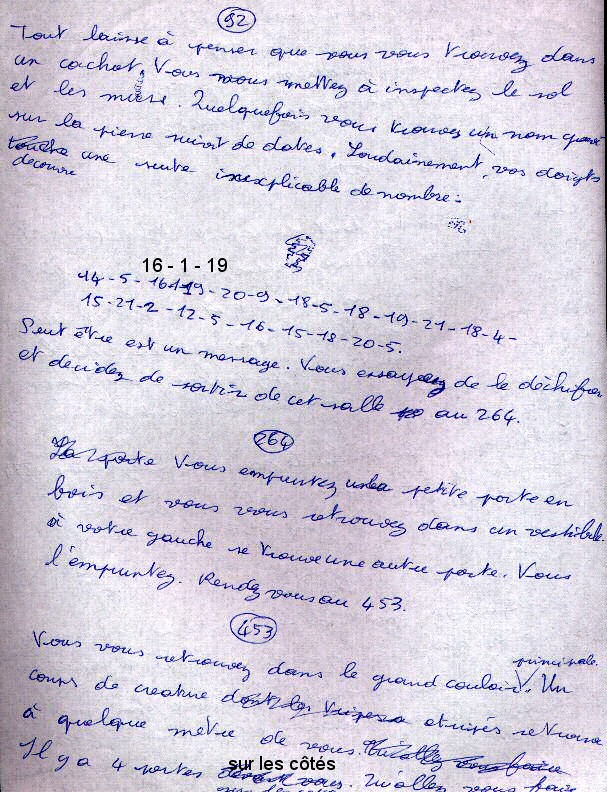 92
Tout laisse à penser que vous vous trouvez dans
un cachot. Vous vous mettez à inspectez le sol
et les murs. Quelquefois vous trouvez un nom gravé
sur la pierre suivit de dates. Soudainement, vos doigts
touche une suite inexplicable de nombre :
decouvre
16 - 1 - 19
14-5-16-1-19-20-9-18-5-18-19-21-18-4-
15-21-2-12-5-16-15-18-20-5.
Peut être est un message. Vous essayez de le déchiffrer
et decidez de sortir de cet salle au 264.
264
La porte Vous empruntez la petite porte en
bois et vous vous retrouvez dans un vestibule.
à votre gauche se trouve une autre porte. Vous
l'empruntez. Rendez vous au 453.
453
principale.
Vous vous retrouvez dans le grand couloir. Un
corps de creature et retrouve
à quelque mètre de vous.
Il y a 4 portes devant vous. vous
sur les côtés